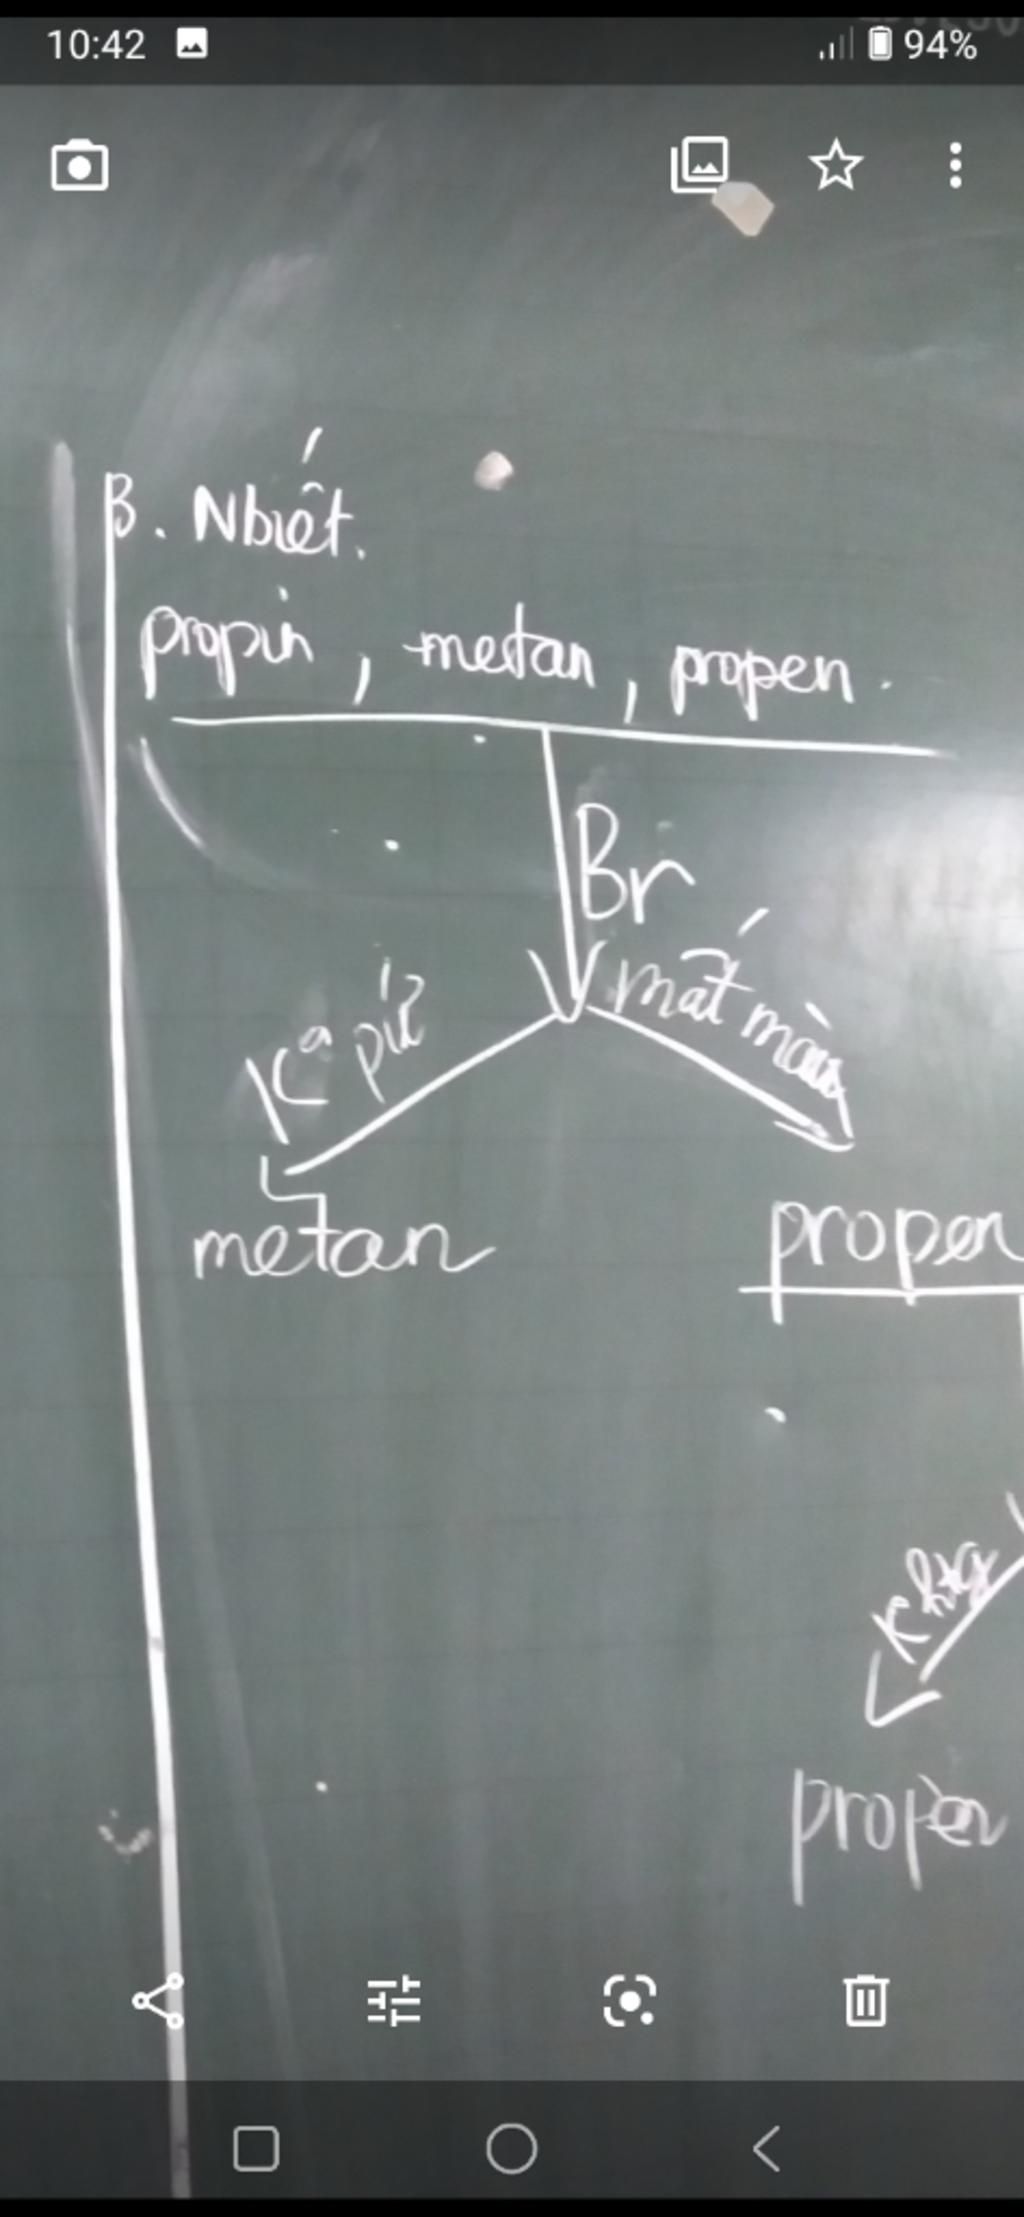 10:42 94%
B. Nbiết.
propin, metan, propen.
Br
mất màu
metan
propen
propen